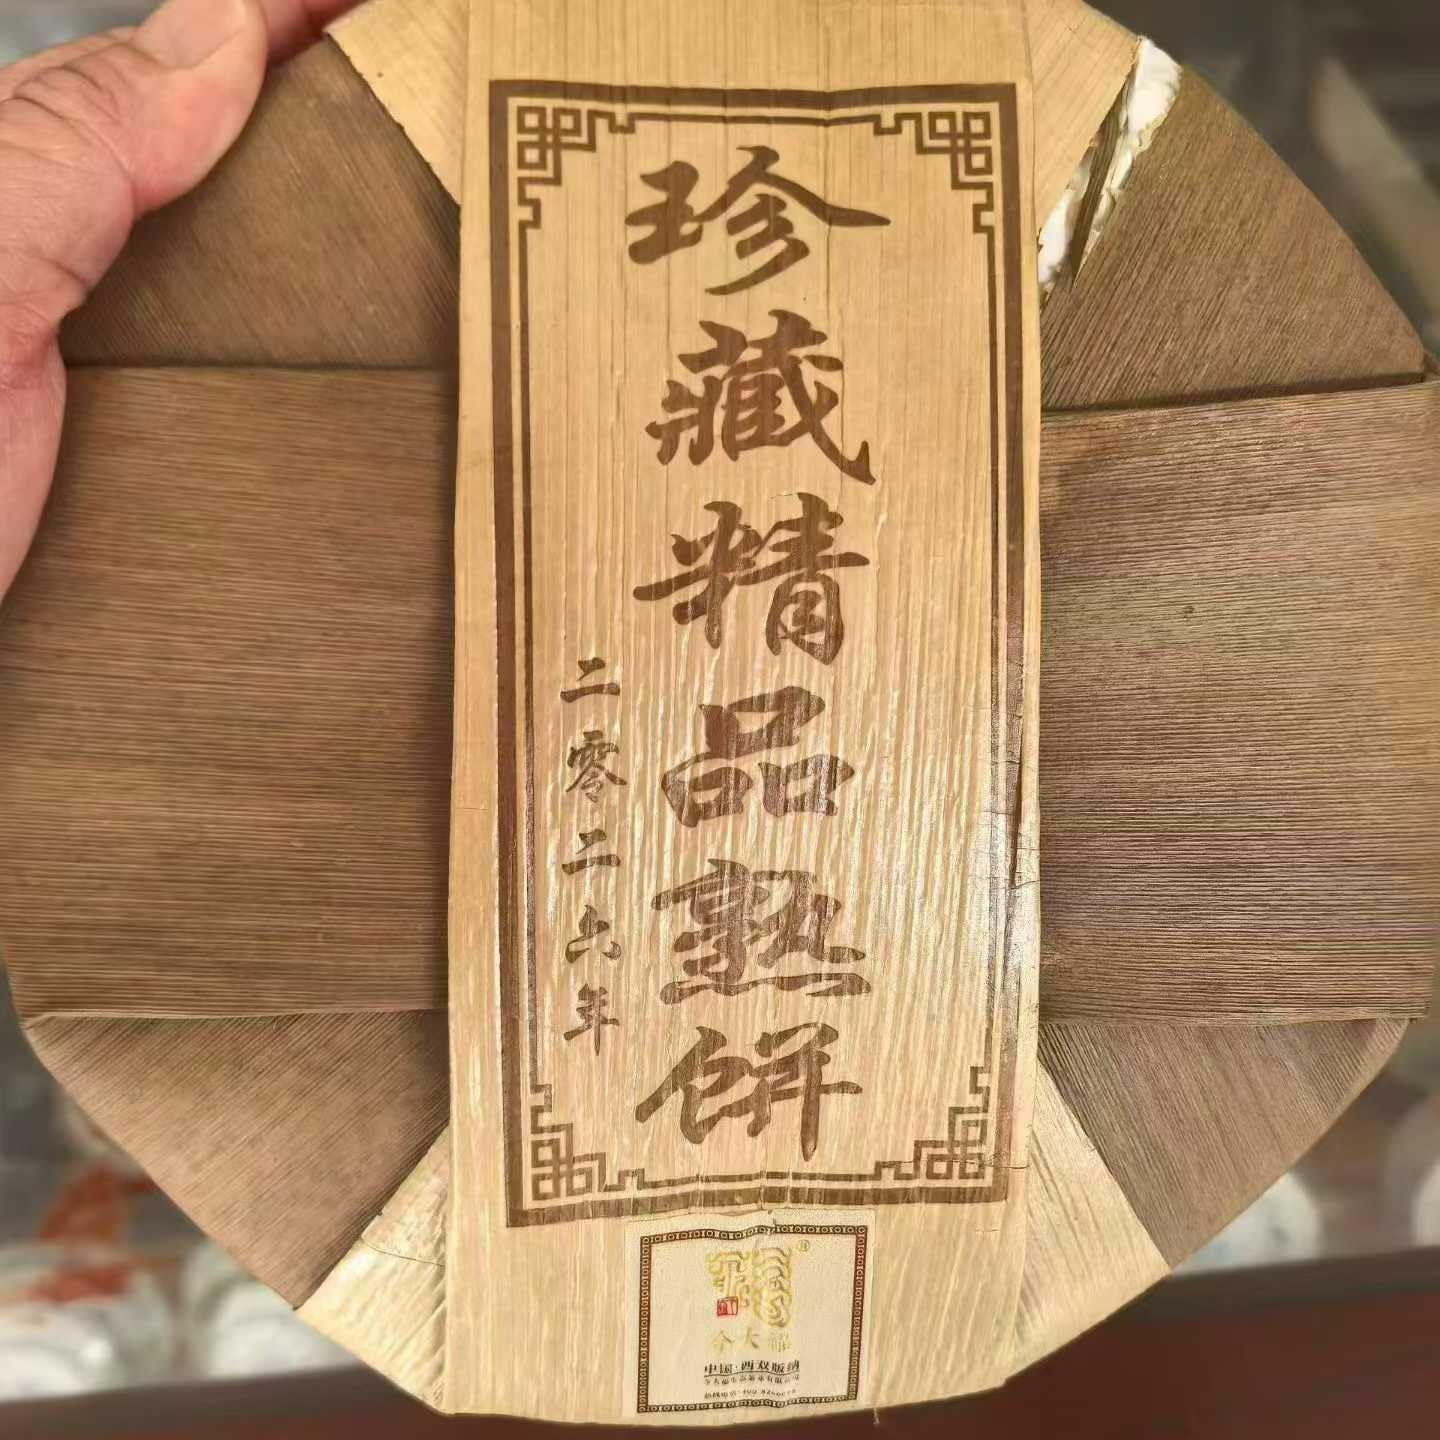 珍藏精品熟餅
二零二六年
今大福
中国·西双版纳